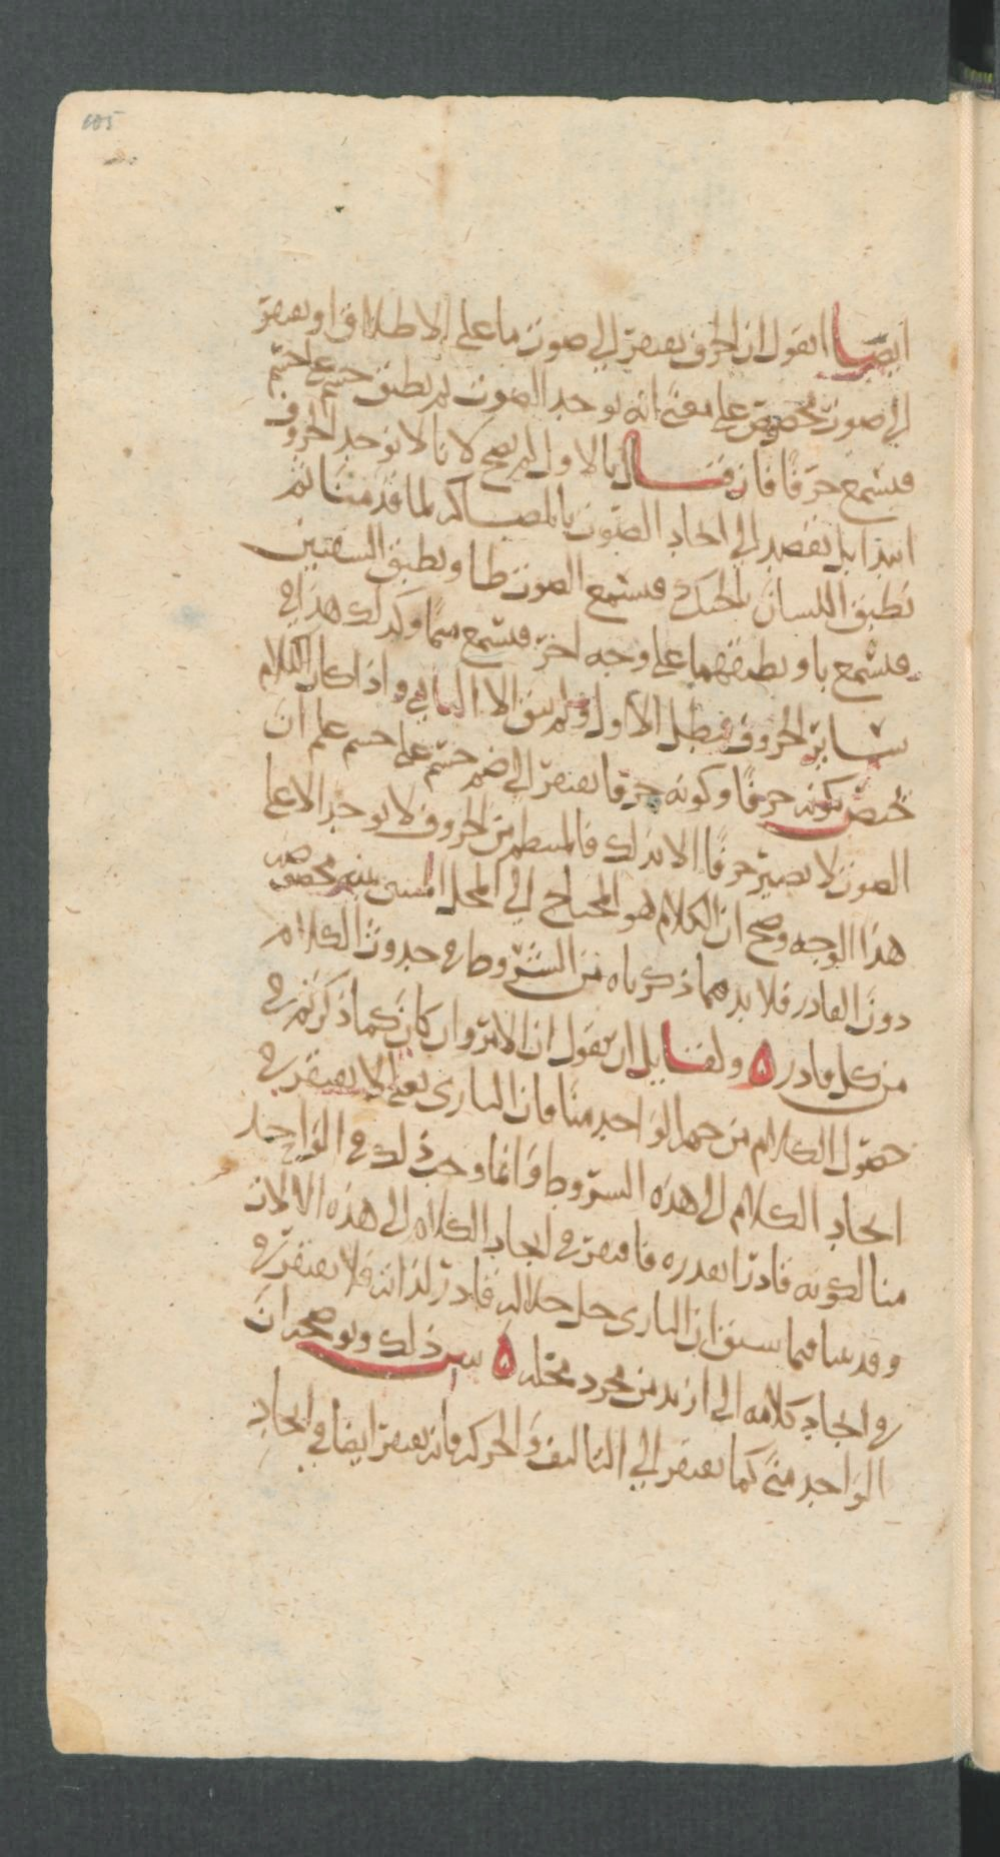 ايضا اتقول ان الحرف يفتقر الى صوت ما على الاطلاق او يفتقر
الى صوت مخصوص على معنى انه يوجد الصوت ثم يطبق جسم على جسم
فيسمع حرفا فان قال بالاول لم يصح لانا لا نوجد الحروف
ابتدا بل نقصد الى ايجاد الصوت بالمصاكه لما قدمنا ثم
نطبق اللسان بالحنك فيسمع الصوت طا ونطبق الشفتين
فيسمع با ونطبقهما على وجه اخر فيسمع ميما وكذلك هذا في
ساير الحروف فبطل الاول ولم يبق الا الثاني واذا كان الكلام
يختص بكونه حرفا وكونه حرفا يفتقر الى ضم جسم على جسم علم ان
الصوت لا يصير حرفا الا بذلك فالمنتظم من الحروف لا يوجد الا على
هذا الوجه وصح ان الكلام هو المحتاج الى المحل المبني بنيه مخصوصه
دون القادر فلا بد مما ذكرناه من الشروط في حدوث الكلام
من كل قادر ۵ ولقايل ان يقول ان الامر وان كان كما ذكرتم في
حصول الكلام من جهه الواحد منا فان البارى تعلى لا يفتقر في
ايجاد الكلام الى هذه الشروط وانما وجب ذلك في الواحد
منا لكونه قادرا بقدره فافتقر في ايجاد الكلام الى هذه الالات
وقد بينا فيما سبق ان البارى جل جلاله قادر لذاته فلا يفتقر في
في ايجاد كلامه الى ازيد من مجرد محله ۵ يبين ذلك ويوضحه ان
الواحد منا كما يفتقر الى التاليف والحركه فانه يفتقر ايضا في ايجاد